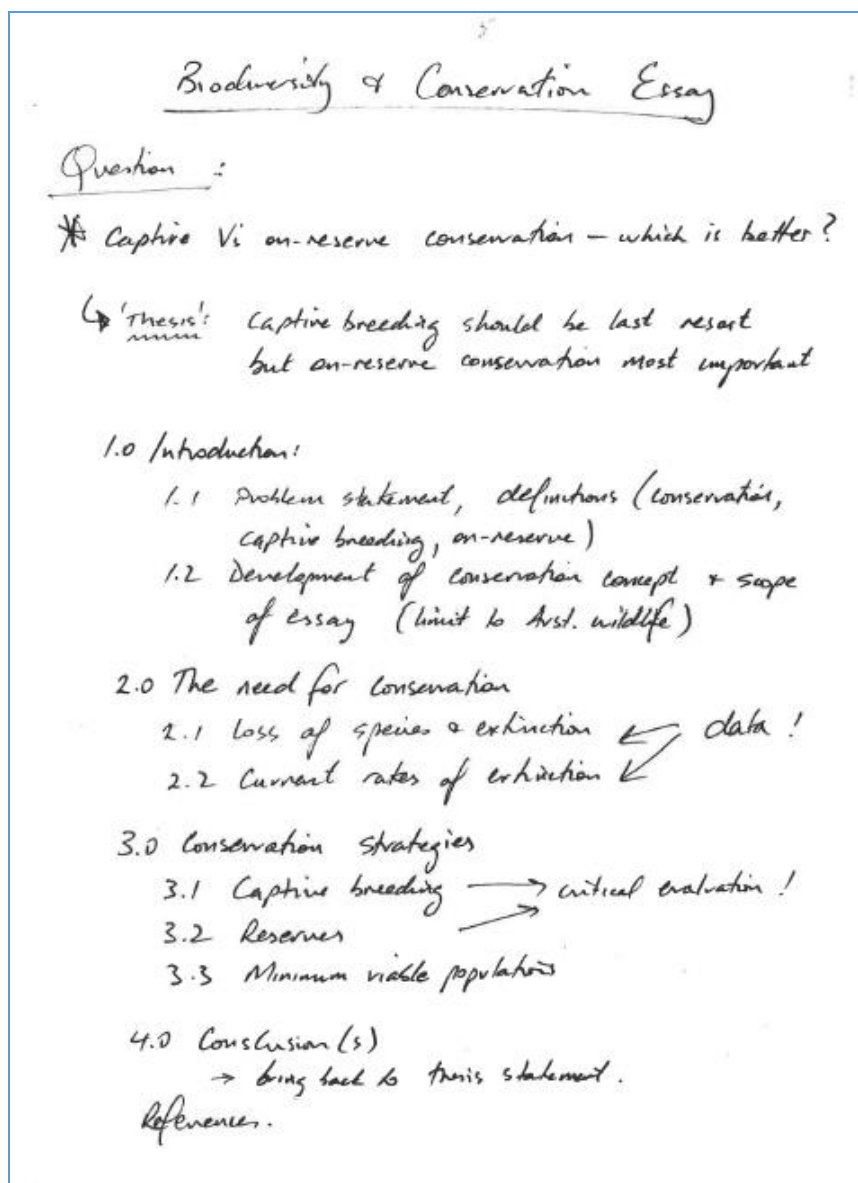 Biodiversity & Conservation Essay
Question :
* Captive Vs on-reserve conservation – which is better?
↳ 'Thesis': Captive breeding should be last resort
but on-reserve conservation most important
1.0 Introduction:
1.1 Problem statement, definitions (conservation,
captive breeding, on-reserve)
1.2 Development of conservation concept & scope
of essay (limit to Aust. wildlife)
2.0 The need for conservation
2.1 Loss of species & extinction ← data !
2.2 Current rates of extinction ↙
3.0 Conservation strategies
3.1 Captive breeding → critical evaluation !
3.2 Reserves
3.3 Minimum viable populations
4.0 Conclusion(s)
→ bring back to thesis statement.
References.